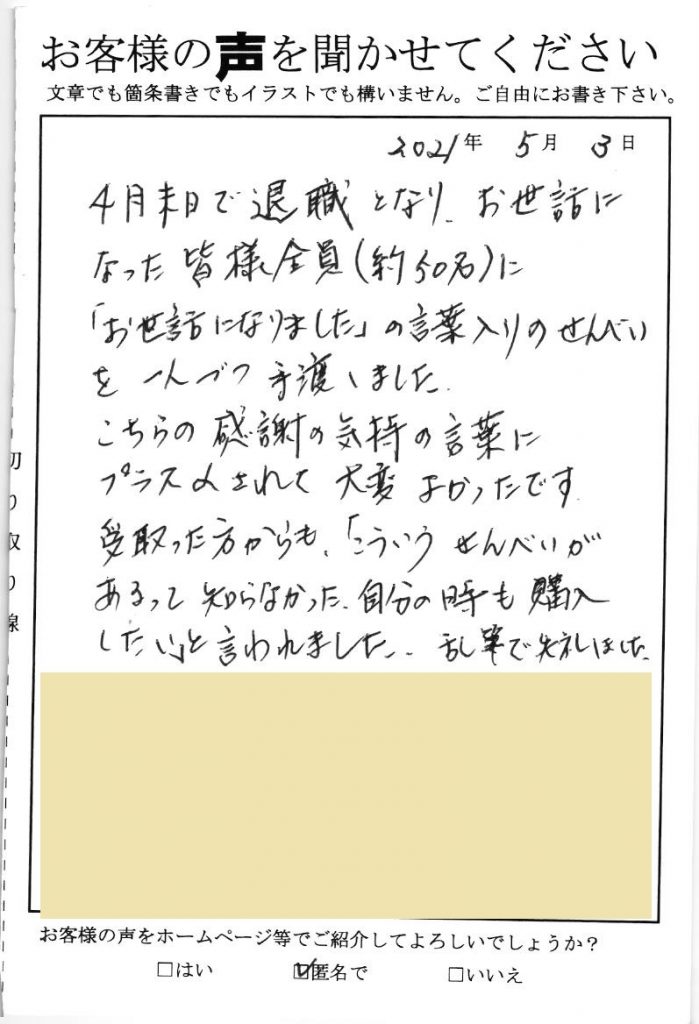 お客様の声を聞かせてください
文章でも箇条書きでもイラストでも構いません。ご自由にお書き下さい。
2021年 5月 3日
4月末日で退職となり、お世話に
なった皆様全員(約50名)に
「お世話になりました」の言葉入りのせんべい
を一人づつ手渡しました。
こちらの感謝の気持の言葉に
プラスαされて大変よかったです
受取った方からも、「こういうせんべいが
あるって知らなかった、自分の時も購入
したい」と言われました。乱筆で失礼しました。
切り取り線
お客様の声をホームページ等でご紹介してよろしいでしょうか?
□はい ☑匿名で □いいえ